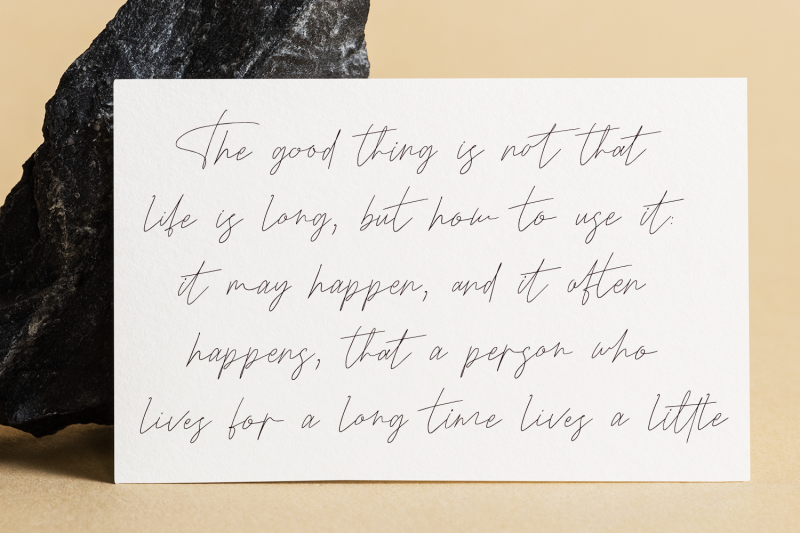 The good thing is not that
life is long, but how to use it:
it may happen, and it often
happens, that a person who
lives for a long time lives a little